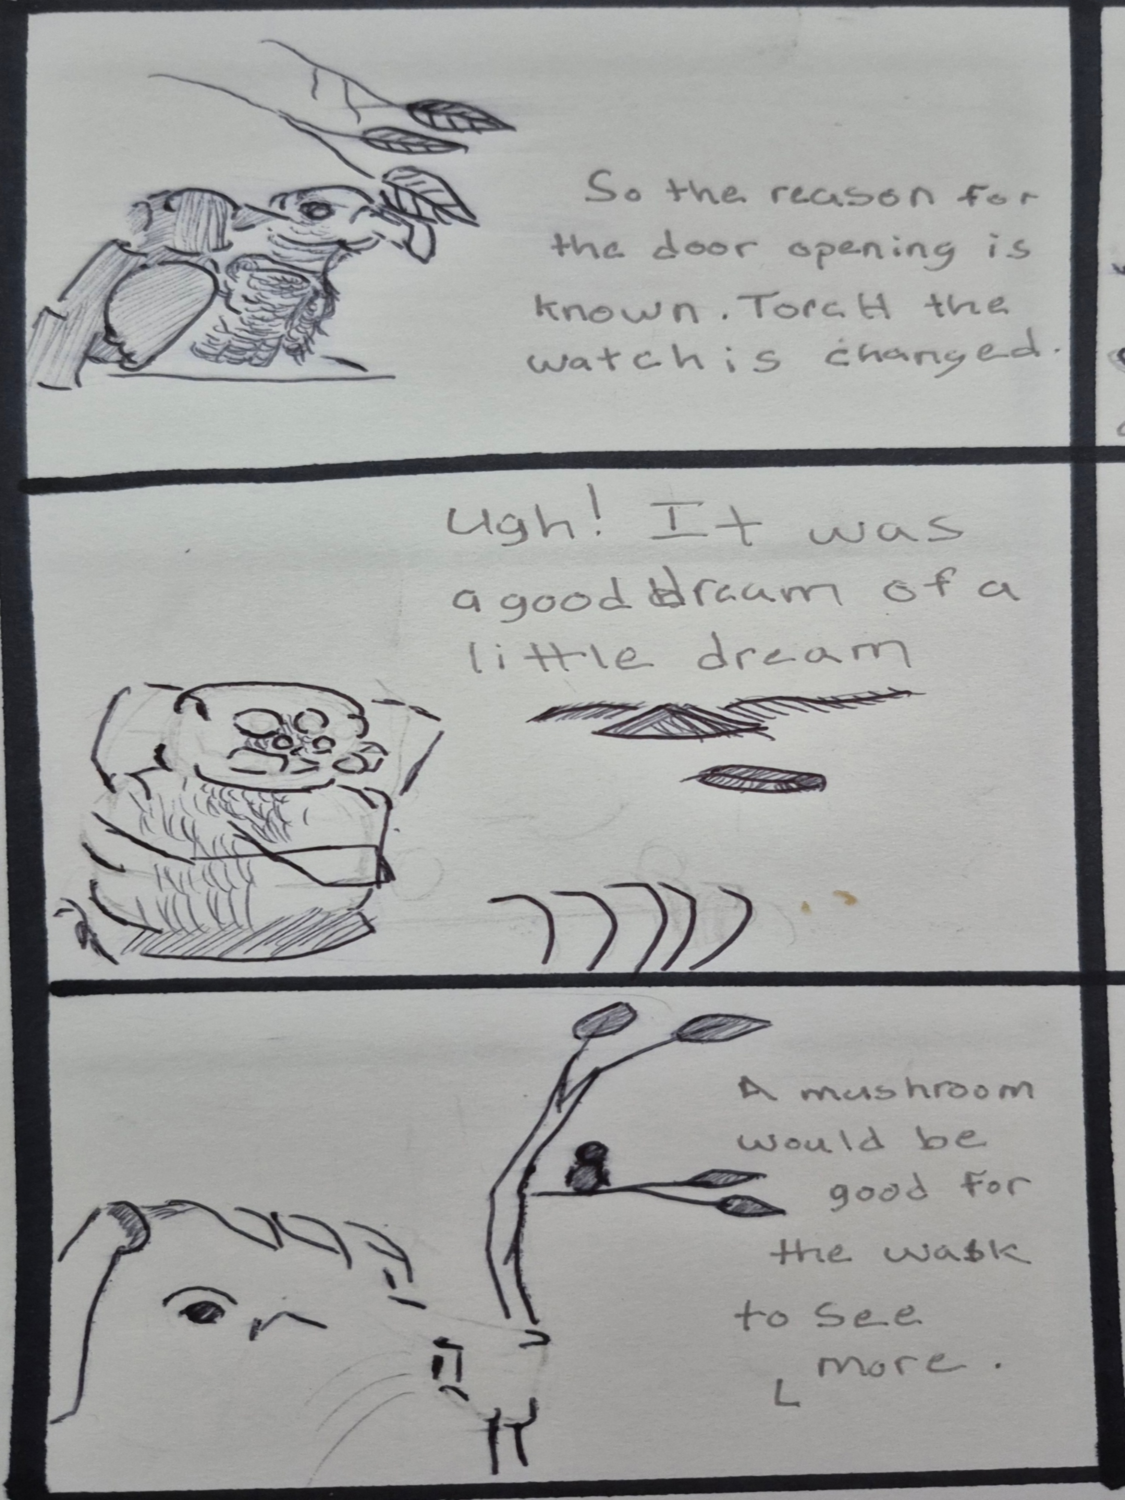 So the reason for
the door opening is
known. Torch the
watch is changed.
Ugh! It was
a good dream of a
little dream
A mushroom
would be
good for
the walk
to see
more.